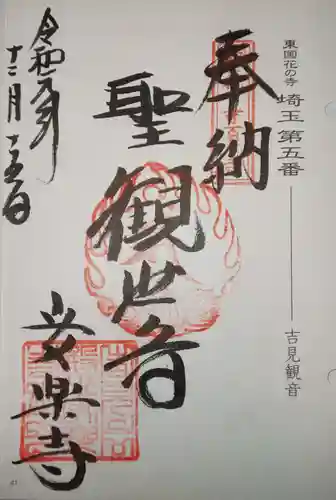 東国花の寺
埼玉 第五番
吉見観音
奉納
聖観世音
安楽寺
令和元年
十二月十五日